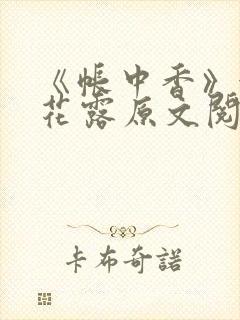 《帐中香》
花露原文阅
卡布奇諾